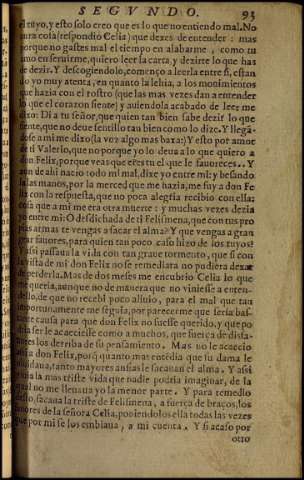 SEGVNDO. 93
el tuyo, y esto solo creo que es lo que no entiendo mal. No
cura cosa (respondio Celia) que dexes de entender : mas
porque no gastes mal el tiempo en alabarme , como tu
amo en seruirme, quiero leer la carta, y dezirte lo que has
de dezir. Y descogiendolo, començo a leerla entre si, estan
do yo muy atenta, en quanto la lehia, a los mouimientos
que hazia con el rostro (que las mas vezes dan a entender
lo que el coraçon siente) y auiendola acabado de leer me
dixo: Di a tu señor, que quien tan bien sabe dezir lo que
siente, que no deue sentillo tan bien como lo dize. Y llegã-
dose a mi me dixo (la voz algo mas baxa:) Y esto por amor
de ti Valerio, que no porque yo lo deua a lo que quiero a
don Felix, porque veas que eres tu el que le fauoreces. . Y
aun de ahi nacio todo mi mal, dixe yo entre mi: y besando
la las manos, por la merced que me hazia, me fuy a don Fe
lix con la respuesta, que no poca alegria recibio con ella:
cosa que a mi me era otra muerte : y muchas vezes dezia
yo entre mi: O desdichada de ti Felismena, que con tus pro
pias armas te vengas a sacar el alma? Y que vengas a gran
gear fauores, para quien tan poco caso hizo de los tuyos?
Y assi passaua la vida con tan graue tormento, que si con
la vista de mi don Felix no se remediara no pudiera dexar
de perderla. Mas de dos meses me encubrio Celia lo que
me queria, aunque no de manera que no viniesse a enten-
dello, de que no recebi poco aliuio, para el mal que tan
importunamente me seguia, por parecerme que seria bas-
tante causa para que don Felix no fuesse querido, y que po
dria ser le acaeciesse como a muchos, que fuerça de disfa-
uores los derriba de su pensamiento. Mas no le acaecio
assi a don Felix, porq̃ quanto mas entẽdia que su dama le
oluidaua, tanto mayores ansias le sacauan el alma. Y assi
viuia la mas triste vida que nadie podria imaginar, de la
qual no me lleuaua yo la menor parte. Y para remedio
desto, sacaua la triste de Felismena , a fuerça de braços, los
fauores de la señora Celia, poniendolos ella todas las vezes
que por mi se los embiaua , a mi cuenta. Y si acaso por
otro